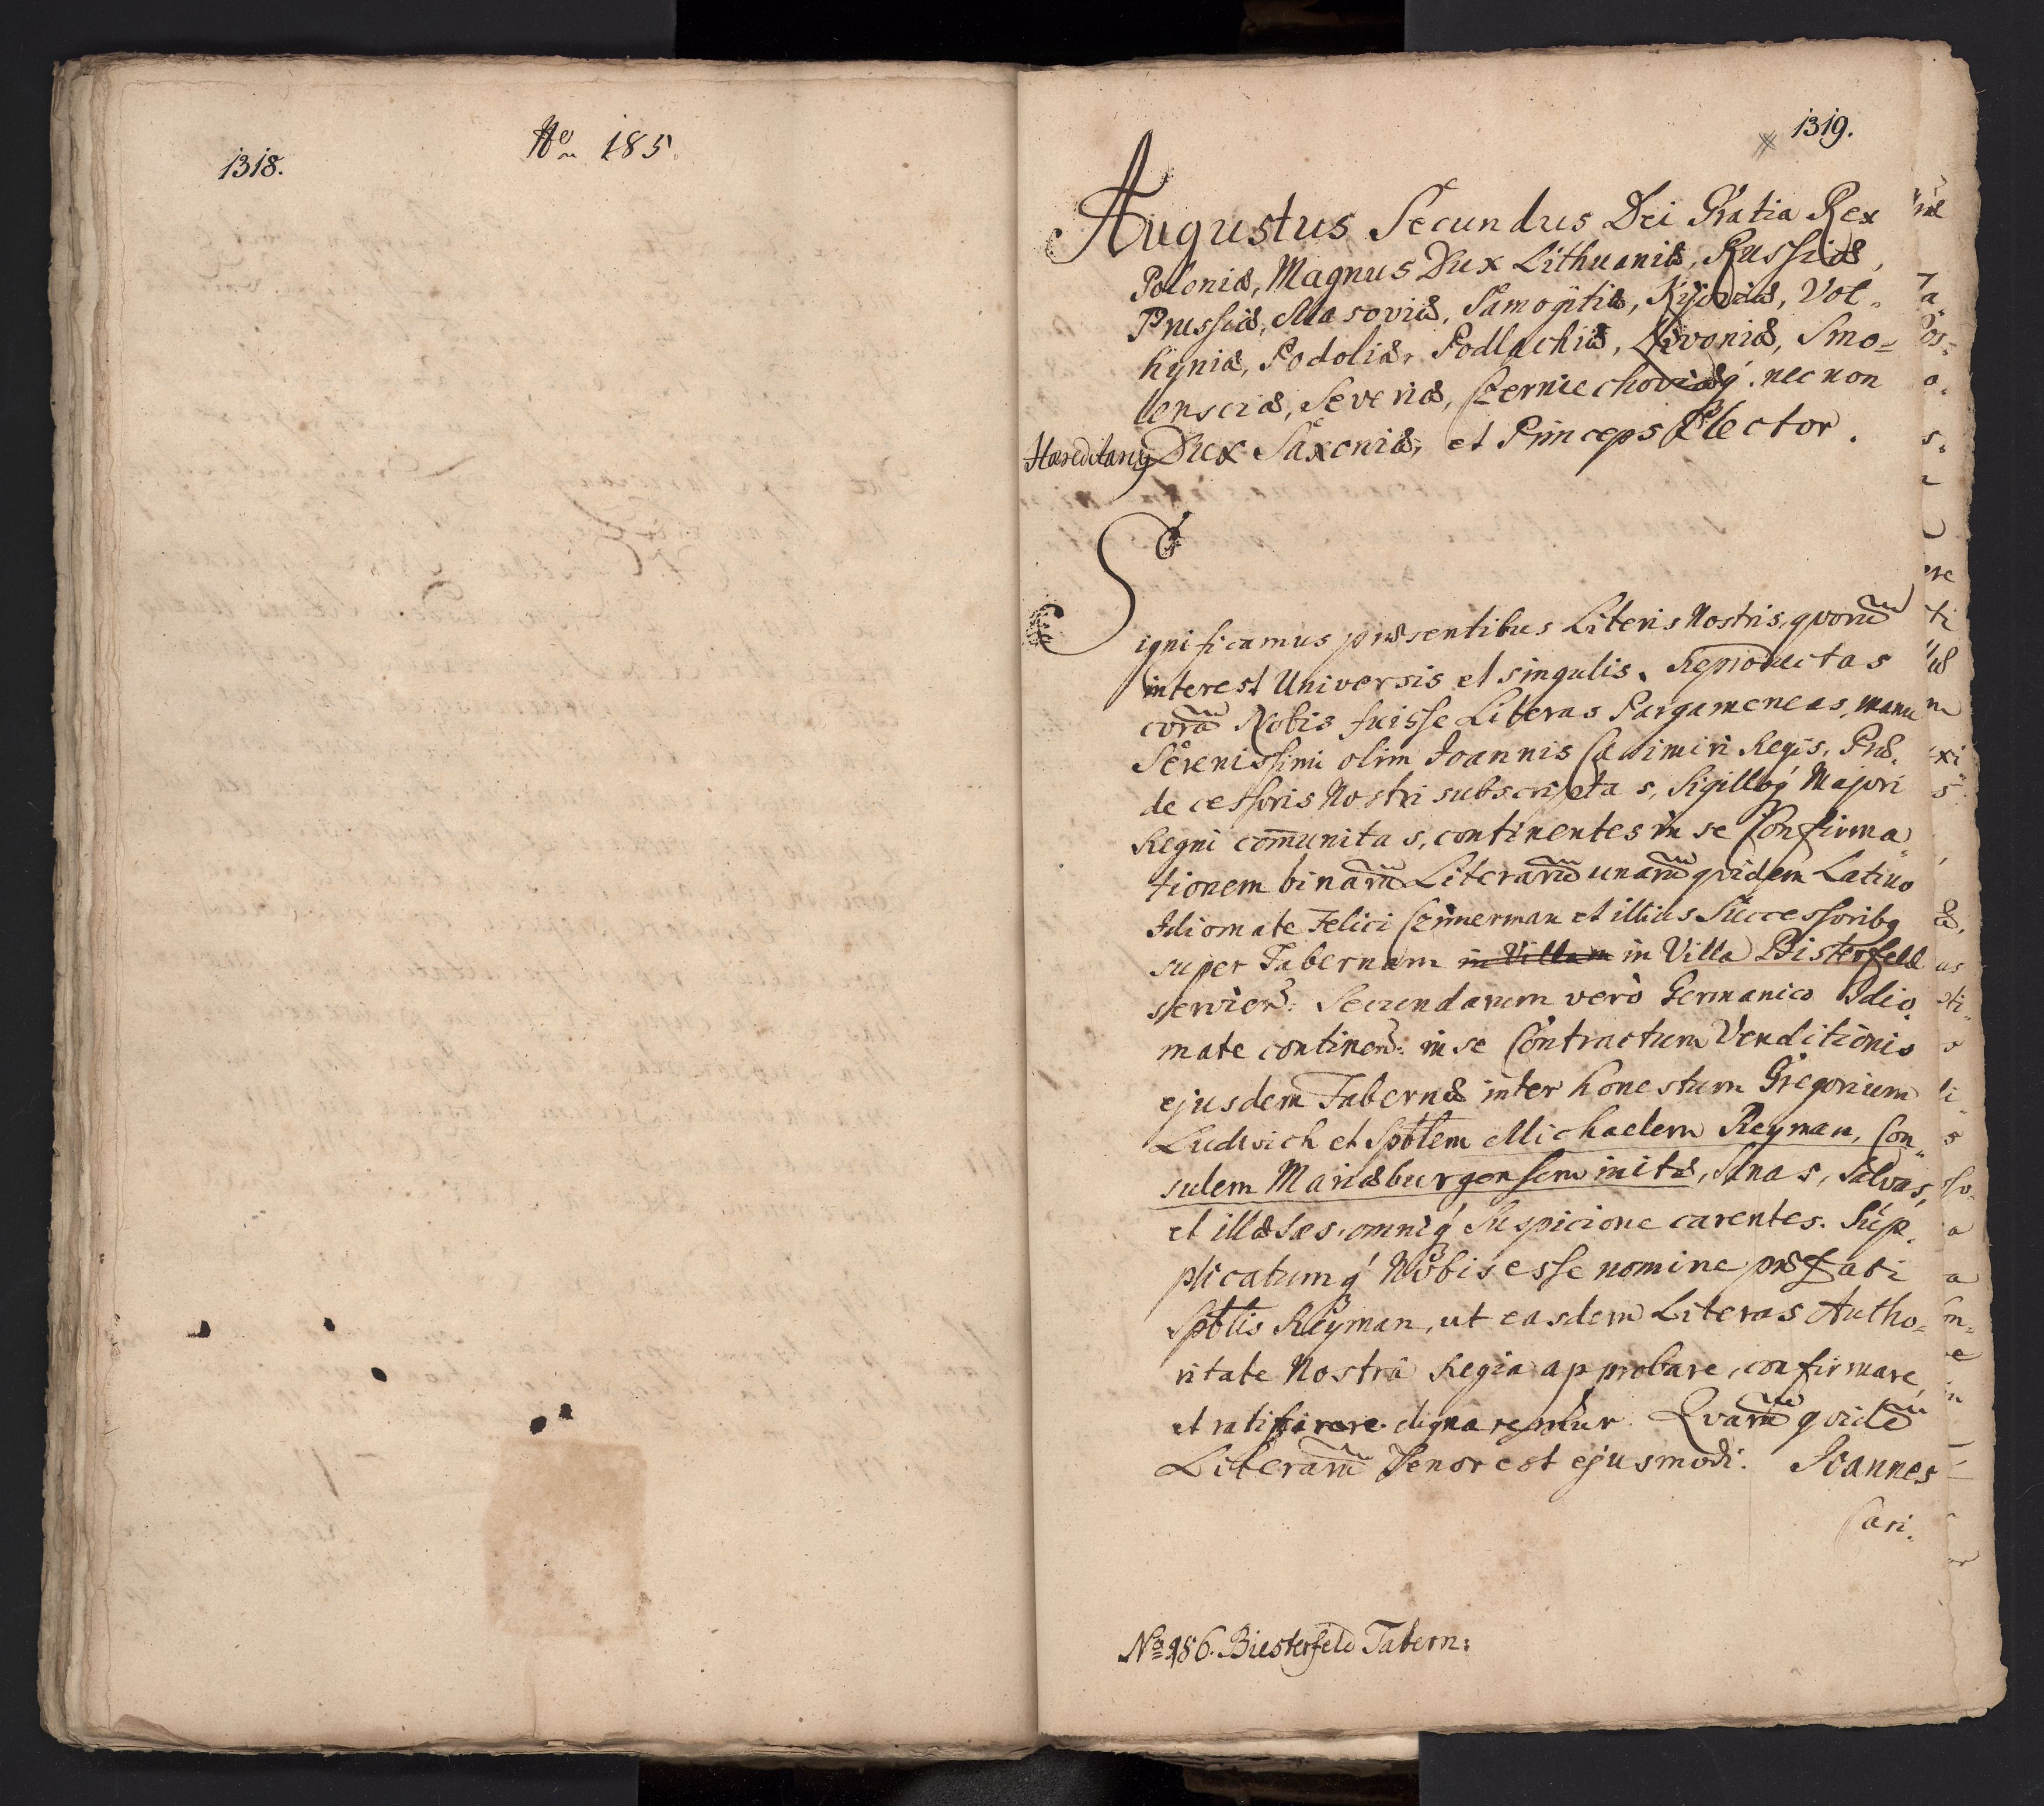 1318.
No 185.
1319.
Augustus Secundus Dei Gratia Rex
Poloniæ, Magnus Dux Lithuaniæ, Russiæ,
Prussiæ, Masoviæ, Samogitiæ, Kijoviæ, Vol-
hyniæ, Podoliæ, Podlachiæ, Livoniæ, Smo-
lensciæ, Severiæ, Czerniechoviæq́. nec non
Hæreditariq Dux Saxoniæ, et Princeps Elector.
Significamus præsentibus Literis Nostris, qvorū
interest Universis et singulis. Reproductas
corā Nobis fuisse Literas Pargameneas, manu
Serenissimi olim Joannis Casimiri Regis, Præ-
decessoris Nostri subscriptas, Sigilloq́ Majori
Regni com̄unitas, continentes in se Confirma-
tionem binarū Literarū unarū qvidem Latino
Idiomate Felici Czimerman et illius Successoribq
super Tabernam in Villam in Villa Bisterfeld
servien: Secundarum verò Germanico Idio-
mate continen: in se Contractum Venditionis
ejusdem Tabernæ inter honestum Gregorium
Ludwich et Spblem Michaelem Reyman, Con-
sulem Mariæburgensem initæ, Sanas, Salvas,
et illæsas, omniq́ Suspicione carentes. Sup-
plicatumq́ Nobis esse nomine præfati
Spblis Reyman, ut easdem Literas Autho-
ritate Nostrâ Regia approbare, confirmare,
et ratificare dignaremur. Qvarū qvidē
Literarū Tenor est ejusmodi. Joannes
Casi-
No 186. Biesterfeld Tabern: